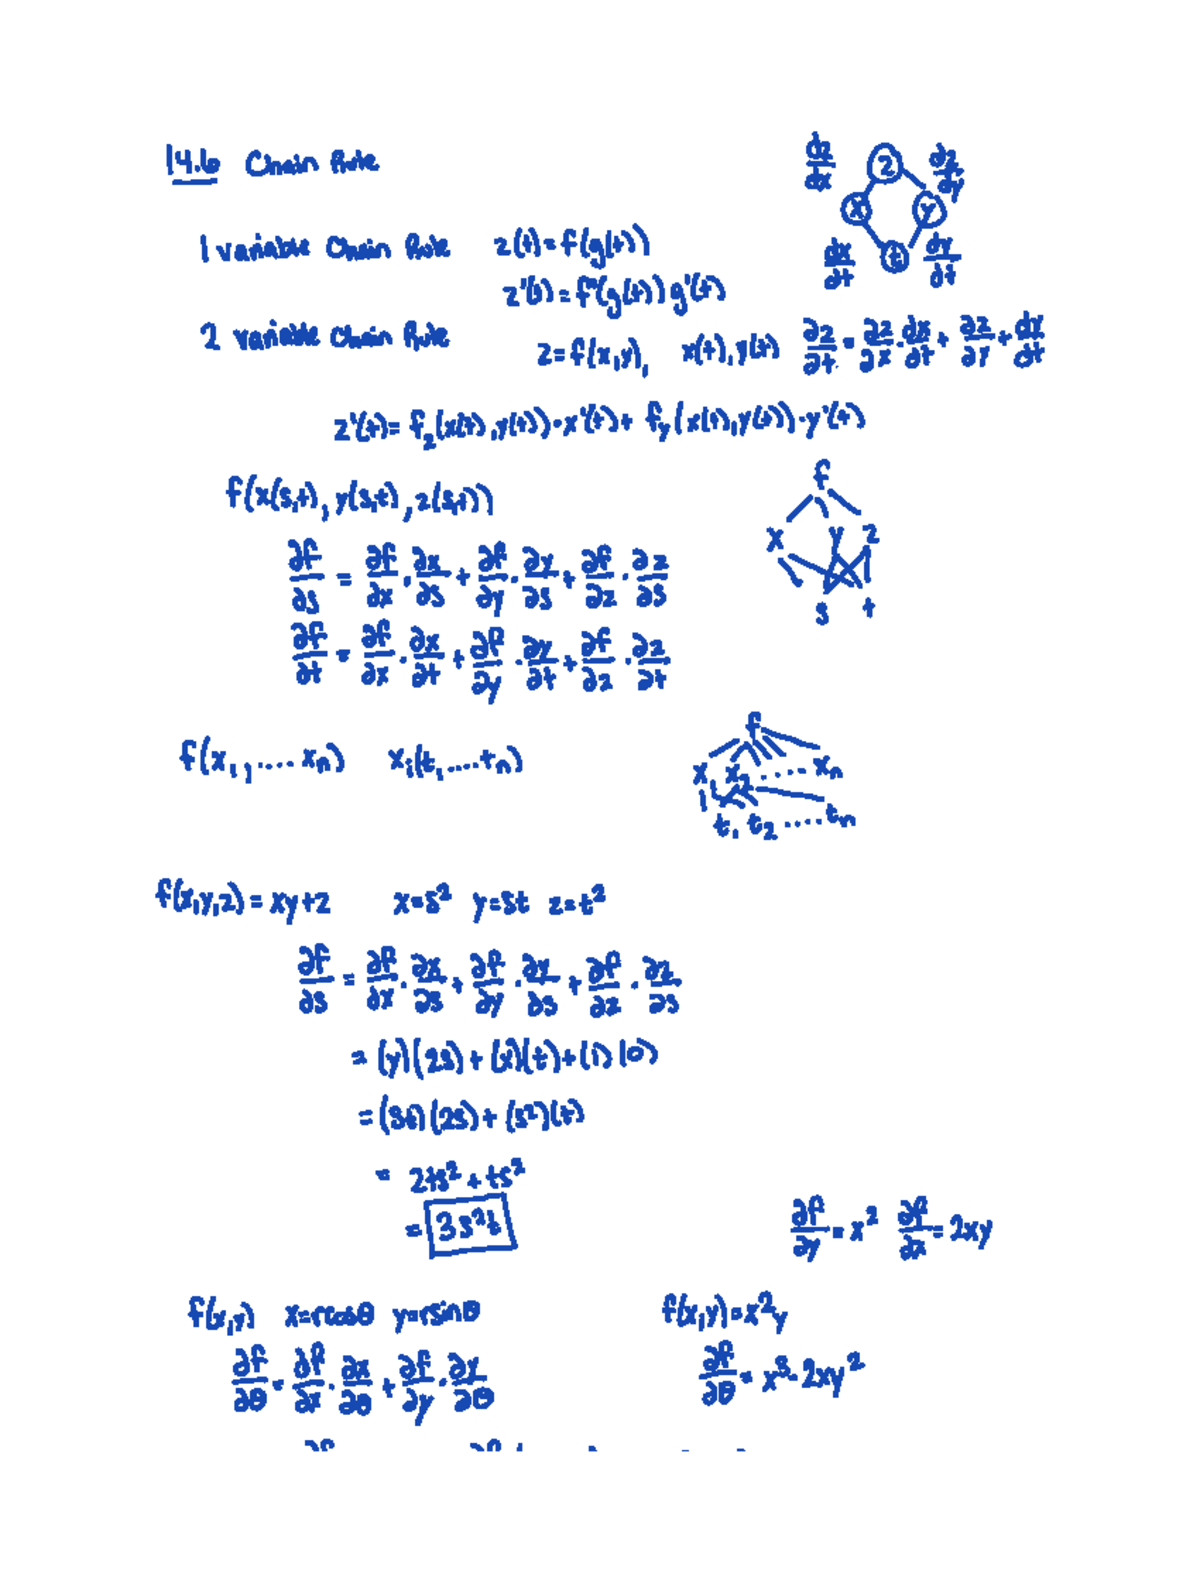 14.6 Chain Rule
dz/dx z dz/dy
x y
dx/dt t dy/dt
1 variable Chain Rule z(t)=f(g(t))
z'(t)=f'(g(t))g'(t)
2 variable Chain Rule z=f(x,y), x(t),y(t) ∂z/∂t = ∂z/∂x · dx/dt + ∂z/∂y + dy/dt
z'(t)= f₂(x(t),y(t))·x'(t)+ fy(x(t),y(t))·y'(t)
f(x(s,t), y(s,t), z(s,t))
f
x y z
s t
∂f/∂s = ∂f/∂x · ∂x/∂s + ∂f/∂y · ∂y/∂s + ∂f/∂z · ∂z/∂s
∂f/∂t = ∂f/∂x · ∂x/∂t + ∂f/∂y · ∂y/∂t + ∂f/∂z · ∂z/∂t
f(x₁,....xₙ) xᵢ(t,....tₙ)
f
x₁ x₂ ..... xₙ
t₁ t₂ ..... tₙ
f(x,y,z)= xy+z x=s² y=st z=t²
∂f/∂s = ∂f/∂x · ∂x/∂s + ∂f/∂y · ∂y/∂s + ∂f/∂z · ∂z/∂s
= (y)(2s)+(x)(t)+(1)(0)
=(st)(2s)+(s²)(t)
= 2ts²+ts²
= 3s²t
∂f/∂y = x² ∂f/∂x = 2xy
f(x,y) x=rcosθ y=rsinθ f(x,y)=x²y
∂f/∂θ = ∂f/∂x · ∂x/∂θ + ∂f/∂y · ∂y/∂θ ∂f/∂θ = x³-2xy²